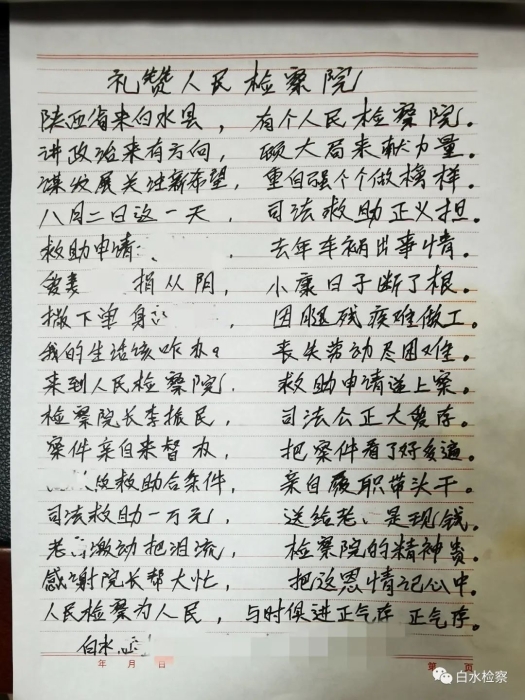 礼赞人民检察院
陕西省来白水县，有个人民检察院。
讲政治来有方向，顾大局来献力量。
谋发展关注新希望，重自强个个做榜样。
八月二日这一天，司法救助正义担。
救助申请 去年车祸出事情。
爱妻 捐从阴，小康日子断了根。
撒下单身 因腿残疾难做工。
我的生活该咋办？丧失劳动尽困难。
来到人民检察院，救助申请送上案。
检察院长李振民，司法公正大爱存。
案件亲自来督办，把案件看了好多遍。
救助合条件，亲自履职带头干。
司法救助一万元，送给老 是现钱。
老 激动把泪流，检察院的精神贵。
感谢院长帮大忙，把这恩情记心中。
人民检察为人民，与时俱进正气存 正气存。
白水
年 月 日 第 页
白水检察